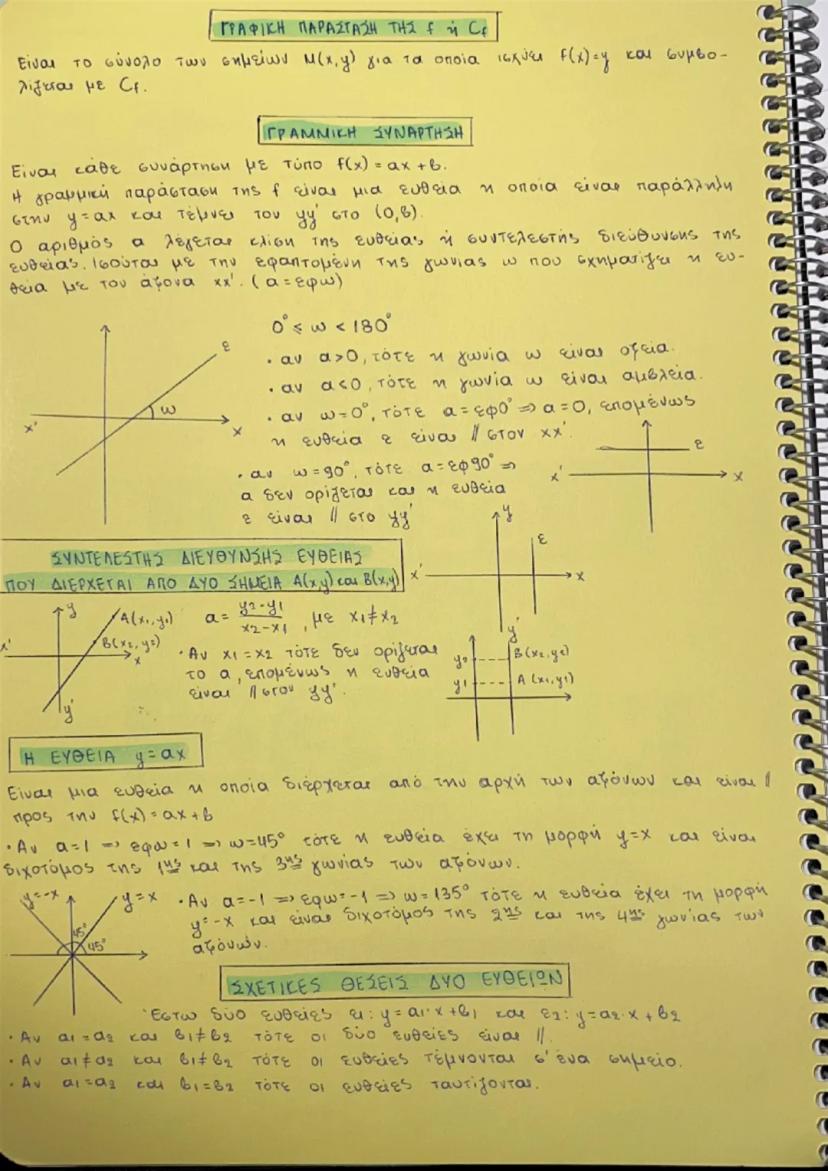 ΓΡΑΦΙΚΗ ΠΑΡΑΣΤΑΣΗ ΤΗΣ f ή Cf
Είναι το σύνολο των σημείων M(x,y) για τα οποία ισχύει f(x)=y και συμβο-
λίζεται με Cf.
ΓΡΑΜΜΙΚΗ ΣΥΝΑΡΤΗΣΗ
Είναι κάθε συνάρτηση με τύπο f(x)=ax+β.
Η γραμμική παράσταση της f είναι μια ευθεία η οποία είναι παράλληλη
στην y=ax και τέμνει τον yy' στο (0,β).
Ο αριθμός a λέγεται κλίση της ευθείας ή συντελεστής διεύθυνσης της
ευθείας. Ισούται με την εφαπτομένη της γωνίας ω που σχηματίζει η ευ-
θεία με τον άξονα xx'. (a=εφω)
0° ≤ ω < 180°
• αν a>0, τότε η γωνία ω είναι οξεία.
• αν a<0, τότε η γωνία ω είναι αμβλεία.
• αν ω=0°, τότε a=εφ0° ⇒ a=0, επομένως
η ευθεία ε είναι // στον xx'.
ε
ω
x'
x
• αν ω=90°, τότε a=εφ90° ⇒
a δεν ορίζεται και η ευθεία
ε είναι // στο yy'
ε
x'
x
y
ε
x'
x
y'
ΣΥΝΤΕΛΕΣΤΗΣ ΔΙΕΥΘΥΝΣΗΣ ΕΥΘΕΙΑΣ
ΠΟΥ ΔΙΕΡΧΕΤΑΙ ΑΠΟ ΔΥΟ ΣΗΜΕΙΑ A(x,y) και B(x,y)
y
A(x1,y1)
B(x2,y2)
x'
x
y'
a = y2-y1 / x2-x1, με x1≠x2
• Αν x1=x2 τότε δεν ορίζεται
το a, επομένως η ευθεία
είναι // στον yy'.
y2
B(x2,y2)
y1
A(x1,y1)
Η ΕΥΘΕΙΑ y=ax
Είναι μια ευθεία η οποία διέρχεται από την αρχή των αξόνων και είναι //
προς την f(x)=ax+β
• Αν a=1 ⇒ εφω=1 ⇒ ω=45° τότε η ευθεία έχει τη μορφή y=x και είναι
διχοτόμος της 1ης και της 3ης γωνίας των αξόνων.
y=-x
y=x
45°
45°
• Αν a=-1 ⇒ εφω=-1 ⇒ ω=135° τότε η ευθεία έχει τη μορφή
y=-x και είναι διχοτόμος της 2ης και της 4ης γωνίας των
αξόνων.
ΣΧΕΤΙΚΕΣ ΘΕΣΕΙΣ ΔΥΟ ΕΥΘΕΙΩΝ
Έστω δύο ευθείες ε1: y=a1·x+β1 και ε2: y=a2·x+β2
• Αν a1=a2 και β1≠β2 τότε οι δύο ευθείες είναι //.
• Αν a1≠a2 και β1≠β2 τότε οι ευθείες τέμνονται σ' ένα σημείο.
• Αν a1=a2 και β1=β2 τότε οι ευθείες ταυτίζονται.